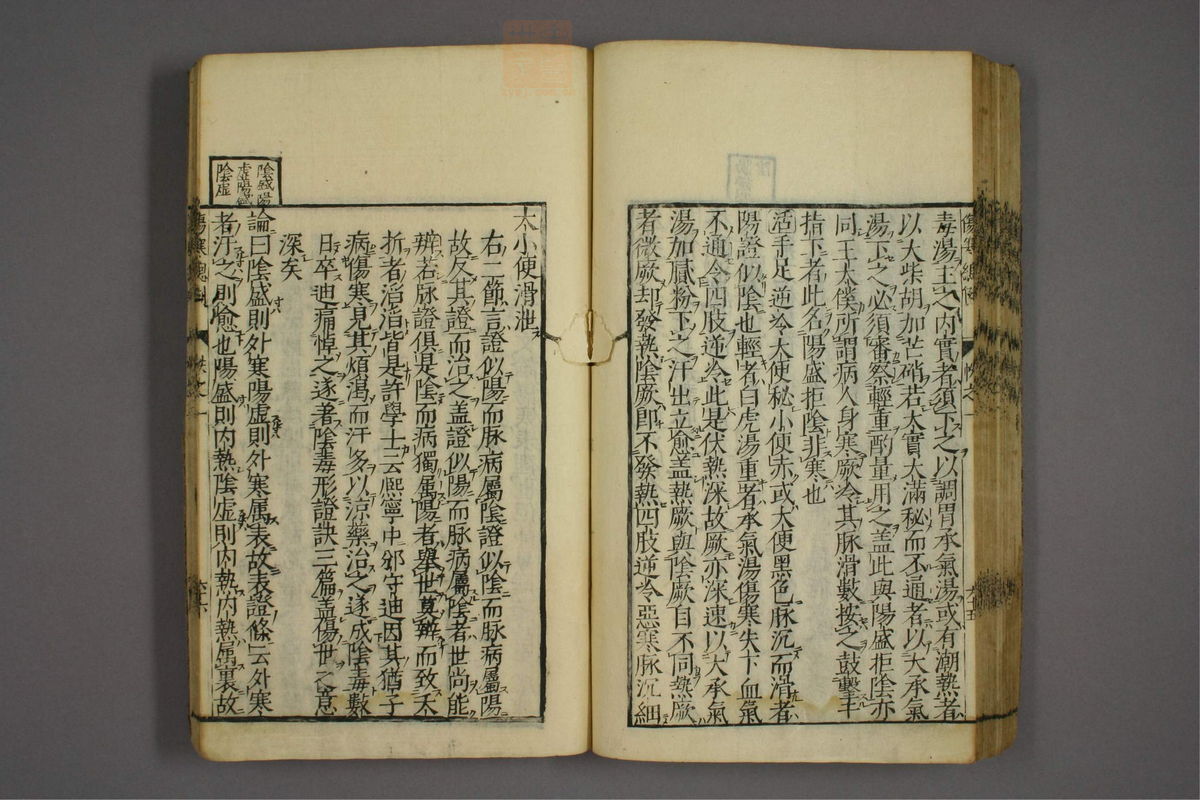 毒湯主之内實者須下之以調胃承氣湯或有潮熱者
以大柴胡加芒硝若大實大滿秘而不通者以大承氣
湯下之必須審察輕重酌量用之盖此與陽盛拒陰亦
同王太僕所謂病人身寒厥冷其脉滑數按之鼓擊于
指下者此名陽盛拒陰非寒也
活手足逆冷大便秘小便赤或大便黑色脉沉而滑者
陽證似陰也輕者白虎湯重者承氣湯傷寒失下血氣
不通令四肢逆冷此是伏熱深故厥亦深速以大承氣
湯加膩粉下之汗出立愈盖熱厥與陰厥自不同熱厥
者微厥却發熱陰厥即不發熱四肢逆冷惡寒脉沉細
大小便滑泄
右二節言證似陽而脉病屬陰證似陰而脉病屬陽
故反其證而治之盖證似陽而脉病屬陰者世尚能
辨若脉證俱是陰而病獨屬陽者舉世莫辨而致夭
折者滔滔皆是許學士云熈寧中邠守迪因其猶子
病傷寒見其煩渴而汗多以凉藥治之遂成陰毒數
日卒迪痛悼之遂著陰毒形證訣三篇盖傷世之意
深矣
陰盛陽
虚陽盛
陰虚
論曰陰盛則外寒陽虚則外寒屬表故表證條云外寒
者汗之則愈也陽盛則内熱陰虚則内熱内熱屬裏故